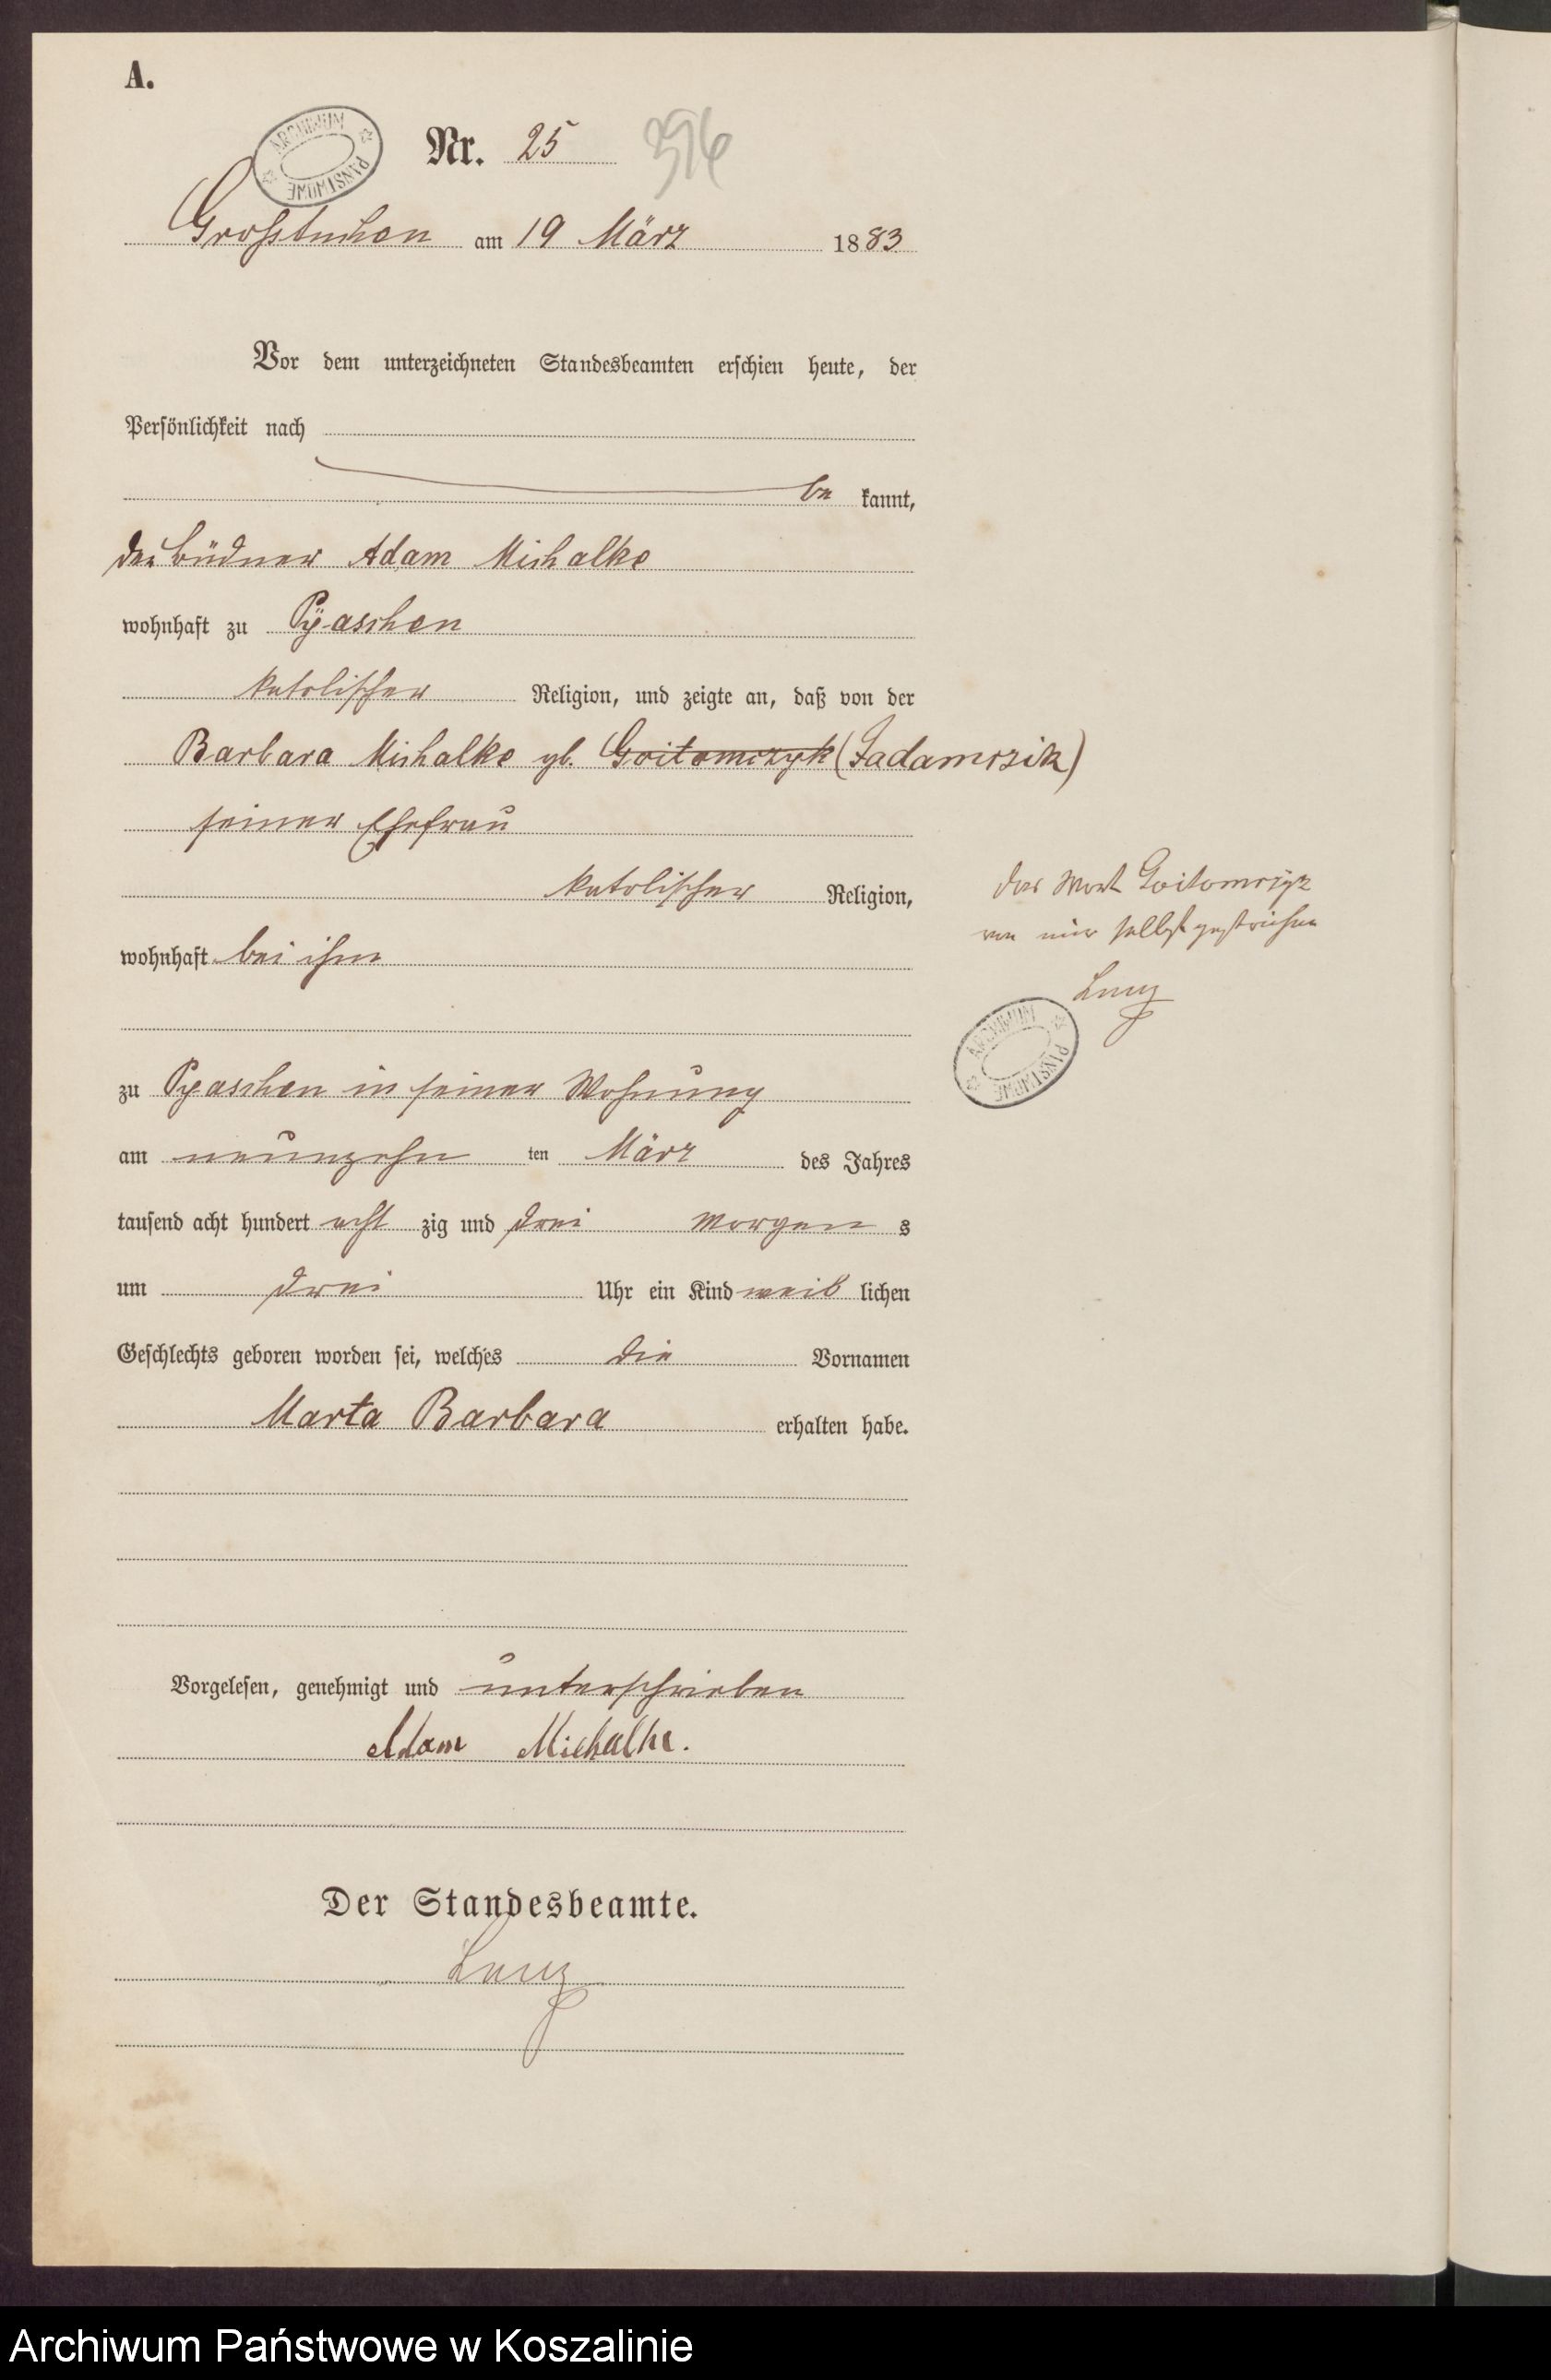 A.
ARCHIWUM PAŃSTWOWE
Nr. 25 396
Grosstuchen am 19 März 1883
Vor dem unterzeichneten Standesbeamten erschien heute, der
Persönlichkeit nach
be kannt,
der Büdner Adam Michalke
wohnhaft zu Pÿaschen
katolischer Religion, und zeigte an, daß von der
Barbara Michalke gb. Goitomczyk (Zadamczik)
seiner Ehefrau
katolischer Religion,
wohnhaft bei ihm
das Wort Goitomczyz
von mir selbst gestrichen
ARCHIWUM PAŃSTWOWE
zu Pyaschen in seiner Wohnung
am neunzehn ten März des Jahres
tausend acht hundert acht zig und drei Morgen s
um drei Uhr ein Kind weib lichen
Geschlechts geboren worden sei, welches die Vornamen
Marta Barbara erhalten habe.
Vorgelesen, genehmigt und unterschrieben
Adam Michalke.
Der Standesbeamte.
Archiwum Państwowe w Koszalinie